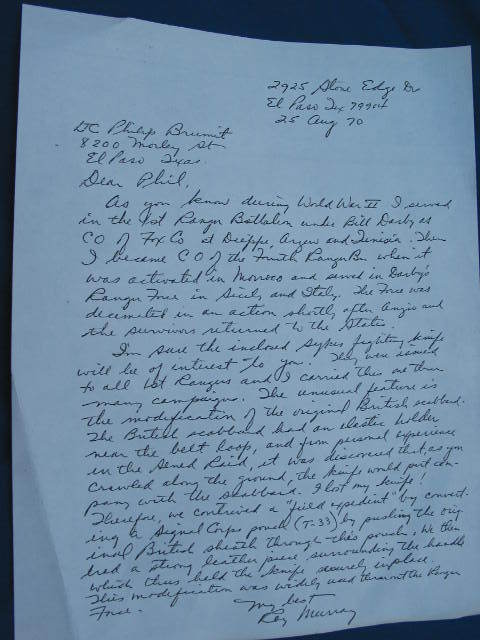 2925 Stone Edge Dr
El Paso Tex 79904
25 Aug 70
LTC Philip Brumit
8200 Morley St
El Paso Texas
Dear Phil,
As you know during World War II I served
in the 1st Ranger Battalion under Bill Darby as
CO of Fox Co at Dieppe, Arzew and Tunisia. Then
I became CO of the Fourth Ranger Bn when it
was activated in Morocco and served in Darby's
Ranger Force in Sicily and Italy. The Force was
decimated in an action shortly after Anzio and
the survivors returned to the States.
I'm sure the inclosed Sykes fighting knife
will be of interest to you. They were issued
to all 1st Rangers and I carried this one thru
many campaigns. The unusual feature is
the modification of the original British scabbard.
The British scabbard had an elastic holder
near the belt loop, and from personal experience
in the Sened Raid, it was discovered that, as you
crawled along the ground, the knife would part com-
pany with the scabbard. I lost my knife!
Therefore, we contrived a "field expedient" by convert-
ing a Signal Corps pouch (T-33) by pushing the orig-
inal British sheath through this pouch. We then
had a strong leather piece, surrounding the handle
which thus held the knife securely in place.
This modification was widely used throughout the Ranger
Force.
My best
Roy Murray